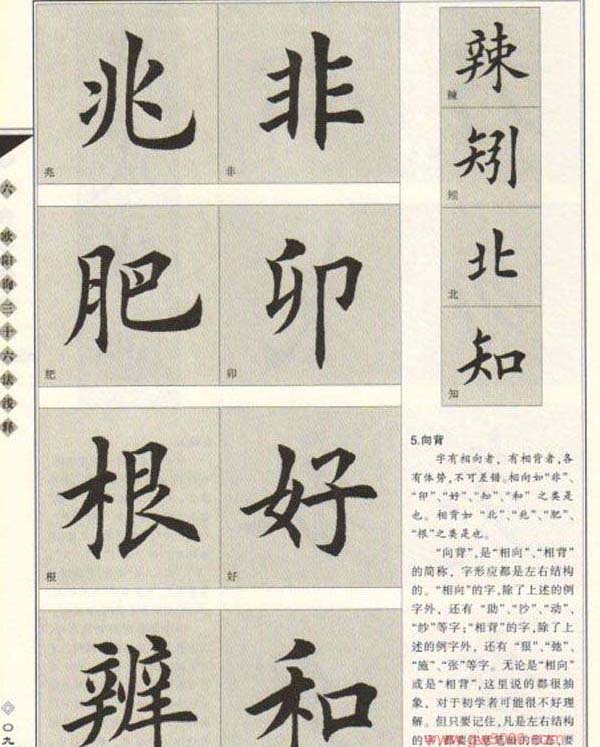 六 欧阳询三十六法浅释
兆 非
兆 非
肥 卯
肥 卯
根 好
根 好
辨 和
辣
辣
矧
矧
北
北
知
知
5.向背
字有相向者，有相背者，各
有体势，不可差错。相向如“非”、
“卯”、“好”、“知”、“和”之类是
也。相背如“北”、“兆”、“肥”、
“根”之类是也。
“向背”，是“相向”、“相背”
的简称，字形应都是左右结构
的。“相向”的字，除了上述的例
字外，还有“助”、“抄”、“动”、
“钞”等字；“相背”的字，除了上
述的例字外，还有“狠”、“弛”、
“施”、“张”等字。无论是“相向”
或是“相背”，这里说的都很抽
象，对于初学者可能很不好理
解。但只要记住，凡是左右结构
的字，都要
〇九